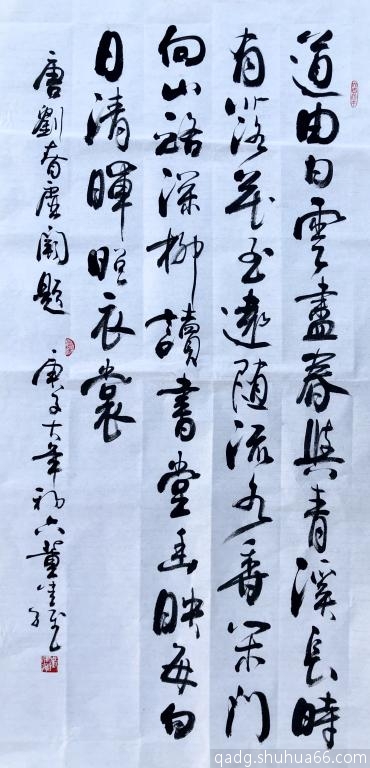 道由白云盡春與青溪長時
有落花至遠随流水香闲门
向山路深柳讀書堂幽映每白
日清暉照衣裳
唐劉眘虛闕題 庚子大年初六董
qadg.shuhua66.com